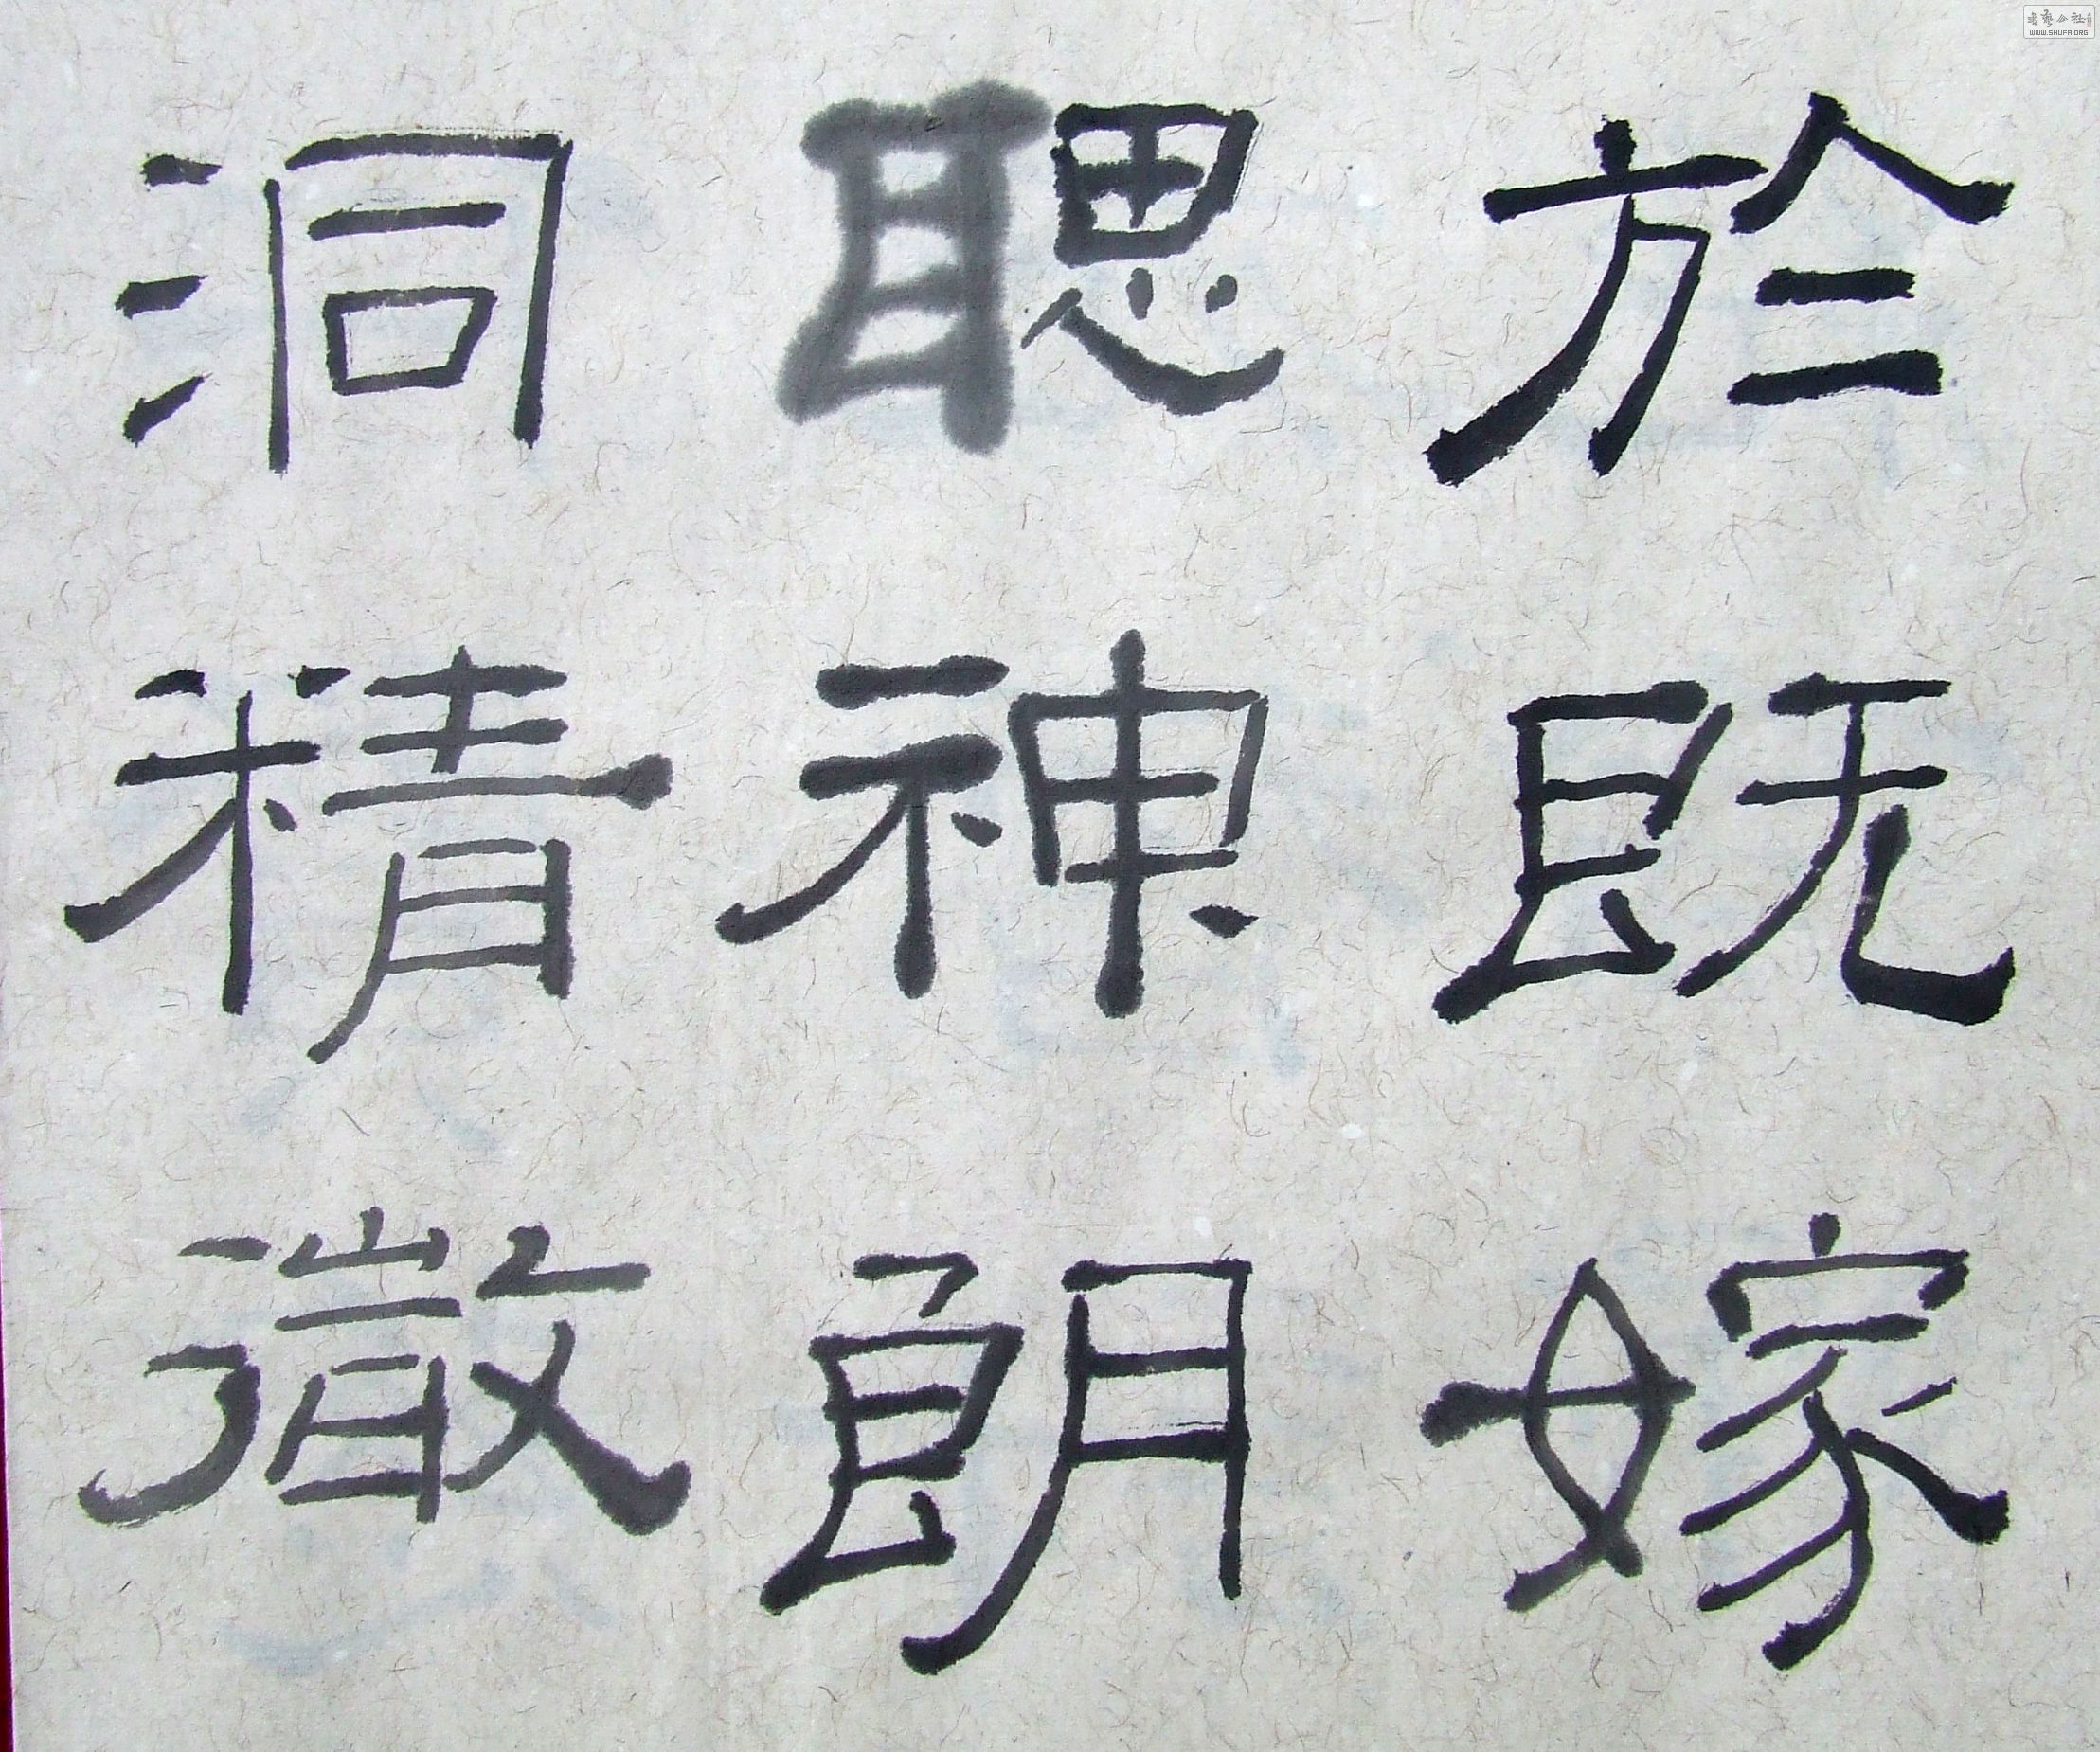 於既嫁
聰神朗
洞精徹
書藝公社
WWW.SHUFA.ORG